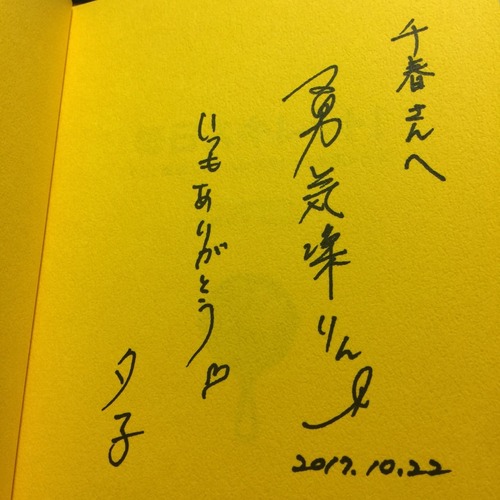 千春さんへ
勇気凛りん
いつもありがとう♡
夕子
2017.10.22